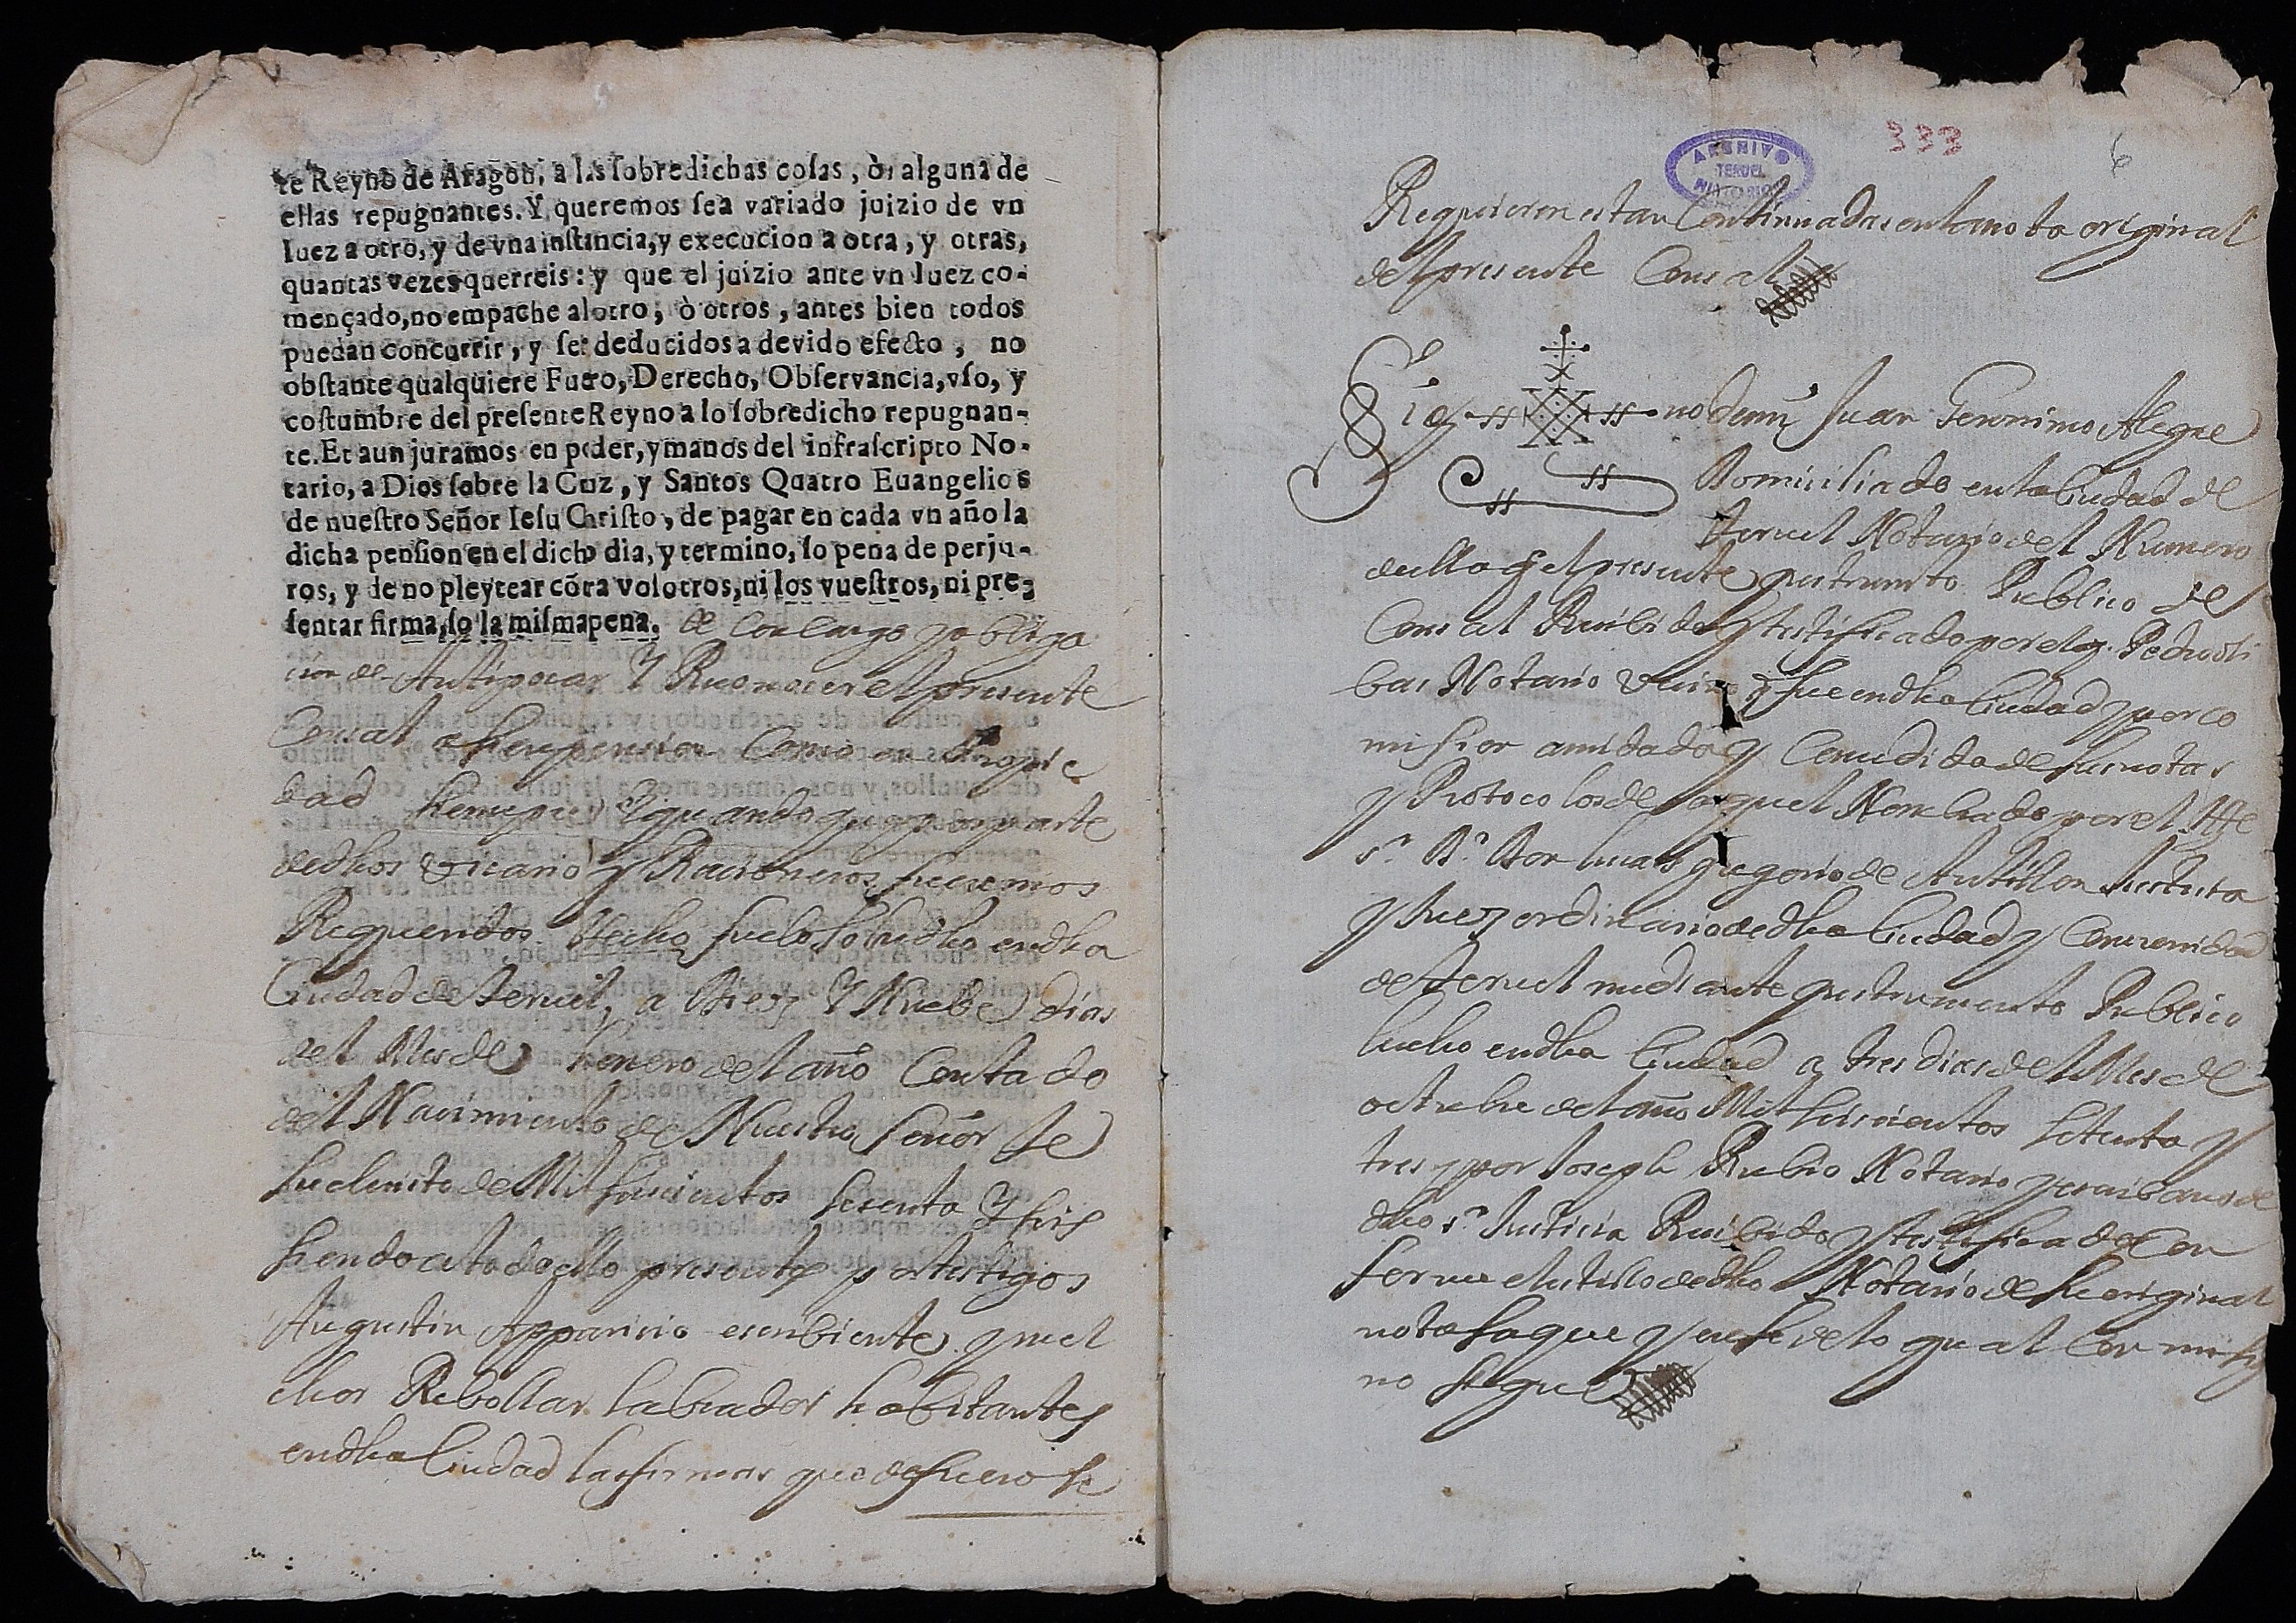 te Reyno de Aragon, a las sobredichas cosas, ò, alguna de
ellas repugnantes. Y queremos sea variado juizio de vn
Iuez a otro, y de vna instancia, y execucion a otra, y otras,
quantas vezes querreis: y que el juizio ante vn Iuez co-
mençado, no empache al otro; ò otros, antes bien todos
puedan concurrir, y ser deducidos a devido efecto, no
obstante qualquiere Fuero, Derecho, Observancia, vso, y
costumbre del presente Reyno a lo sobredicho repugnan-
te. Et aun juramos en poder, y manos del infrascripto No-
tario, a Dios sobre la Cruz, y Santos Quatro Euangelios
de nuestro Señor Iesu Christo, de pagar en cada vn año la
dicha pension en el dicho dia, y termino, so pena de perju-
ros, y de no pleytear cõtra vosotros, ni los vuestros, ni pre-
sentar firma, so la misma pena. de con cargo y obliga
cion de Antipocar Y Reconocer el presente
Censal assi en pension como en Propie
dad siempre Y quando que por parte
de dhos vicario y Racioneros fueremos
Requeridos Hecho fue lo sobredho en dha
Ciudad de Teruel, a Diez Y Nuebe dias
del Mes de henero del año Contado
del Nacimiento de Nuestro Señor Je
suchristo de Mil seiscientos sesenta Y seis
siendo a todo ello presentes por testigos
Augustin Apparicio escribiente y mel
chor Rebollar labrador habitantes
en dha Ciudad las firmas que de fuero se
ARCHIVO
TERUEL
333
6
Requieren estan Continuadas en la nota original
del presente Censal
Sig no de mi Juan Geronimo Alegre
Domiciliado en la Ciudad de
Teruel Notario del Numero
de ella q el presente instrumto Publico de
Censal Recibido y testificado por el q. Pedro Ri
bas Notario vecino q fue en dha Ciudad y por co
mission a mi dada y Concedida de sus notas
y Protocolos de aquel Nombrado por el Ille
Sr. Dr. Don lucas gregorio de Antillon Justicia
y Juez ordinario de dha Ciudad y Comunidad
de Teruel mediante instrumento Publico
hecho en dha Ciudad a tres dias del Mes de
octubre del año Mil seiscientos setenta y
tres y por Joseph Rubio Notario y escribano de
dho Sr. Justicia Recibido y testificado Con
serve el estillo de dho Notario de su original
nota saque y en fe de lo qual Con mi sig
no signe